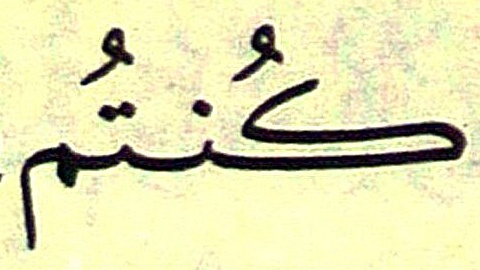 كُنتُم